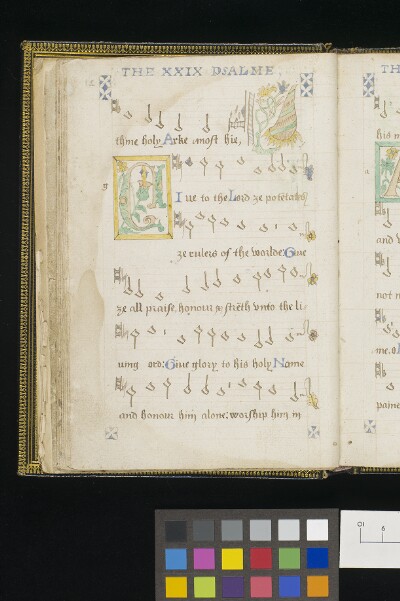 THE XXIX PSALME.
thine holy Arke most hie,
Giue to the Lord ye potētates
ye rulers of the worlde: Giue
ye all praise, honour & strēth vnto the li-
uing Lord: Giue glory to his holy Name
and honour him alone: worship him in
TH
his m
and
not
me.
paine